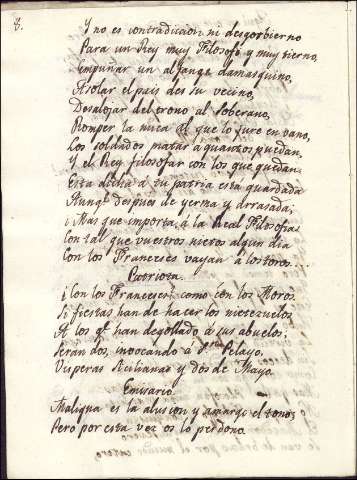 8.
Y no es contradiccion ni desgobierno
Para un Rey muy Filosofo y muy tierno,
Empuñar un alfange damasquino,
Asolar el país de su vecino,
Desalojar del trono al soberano,
Romper la nuca al que lo jure en vano,
Los soldados matar a quantos puedan,
Y el Rey filosofar con los que quedan.
Esta dicha á su patria está guardada
Aunqe. despues de yerma y arrasada;
¿Mas que importa á la Real Filosofia
Con tal que vuestros nietos algun dia
Con los Franceses vayan á los toros.
Patriota.
¿Con los Franceses? como con los Moros.
Si fiestas han de hacer los nietezuelos
A los qe. han degollado á sus abuelos,
Serán dos, invocando á Sn. Pelayo,
Visperas Sicilianas y dos de Mayo.
Emisario
Maligna es la alusion y amargo el tono,
Pero por esta vez os lo perdono.